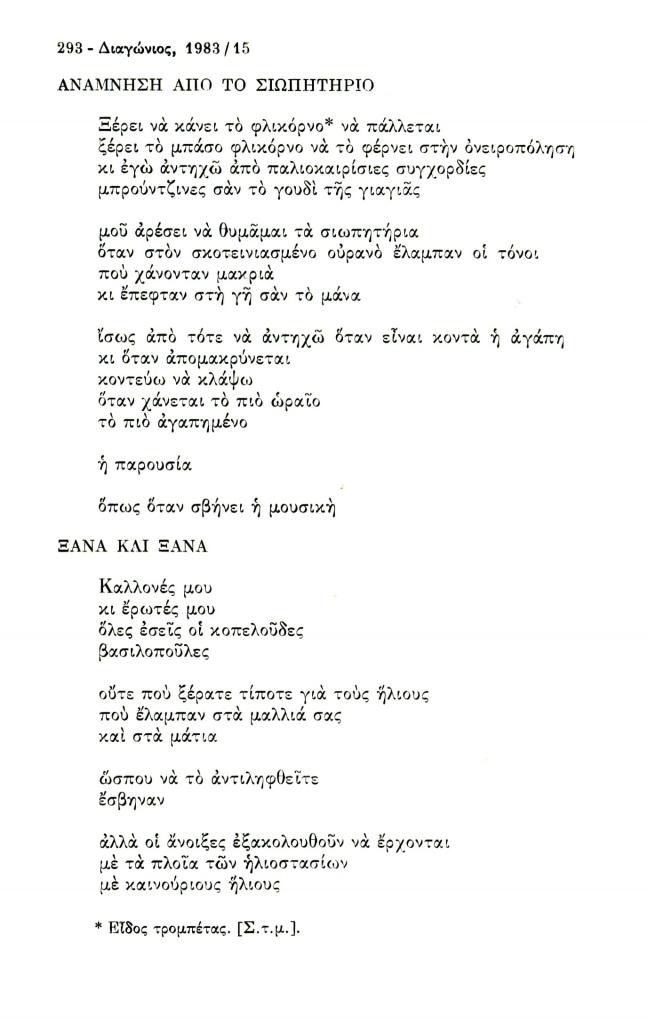 293 - Διαγώνιος, 1983 / 15
ΑΝΑΜΝΗΣΗ ΑΠΟ ΤΟ ΣΙΩΠΗΤΗΡΙΟ
Ξέρει νὰ κάνει τὸ φλικόρνο* νὰ πάλλεται
ξέρει τὸ μπάσο φλικόρνο νὰ τὸ φέρνει στὴν ὀνειροπόληση
κι ἐγὼ ἀντηχῶ ἀπὸ παλιοκαιρίσιες συγχορδίες
μπρούντζινες σὰν τὸ γουδὶ τῆς γιαγιᾶς
μοῦ ἀρέσει νὰ θυμᾶμαι τὰ σιωπητήρια
ὅταν στὸν σκοτεινιασμένο οὐρανὸ ἔλαμπαν οἱ τόνοι
ποὺ χάνονταν μακριὰ
κι ἔπεφταν στὴ γῆ σὰν τὸ μάνα
ἴσως ἀπὸ τότε νὰ ἀντηχῶ ὅταν εἶναι κοντὰ ἡ ἀγάπη
κι ὅταν ἀπομακρύνεται
κοντεύω νὰ κλάψω
ὅταν χάνεται τὸ πιὸ ὡραῖο
τὸ πιὸ ἀγαπημένο
ἡ παρουσία
ὅπως ὅταν σβήνει ἡ μουσικὴ
ΞΑΝΑ ΚΑΙ ΞΑΝΑ
Καλλονές μου
κι ἔρωτές μου
ὅλες ἐσεῖς οἱ κοπελοῦδες
βασιλοποῦλες
οὔτε ποὺ ξέρατε τίποτε γιὰ τοὺς ἥλιους
ποὺ ἔλαμπαν στὰ μαλλιά σας
καὶ στὰ μάτια
ὥσπου νὰ τὸ ἀντιληφθεῖτε
ἔσβηναν
ἀλλὰ οἱ ἄνοιξες ἐξακολουθοῦν νὰ ἔρχονται
μὲ τὰ πλοῖα τῶν ἡλιοστασίων
μὲ καινούριους ἥλιους
* Εἶδος τρομπέτας. [Σ.τ.μ.].